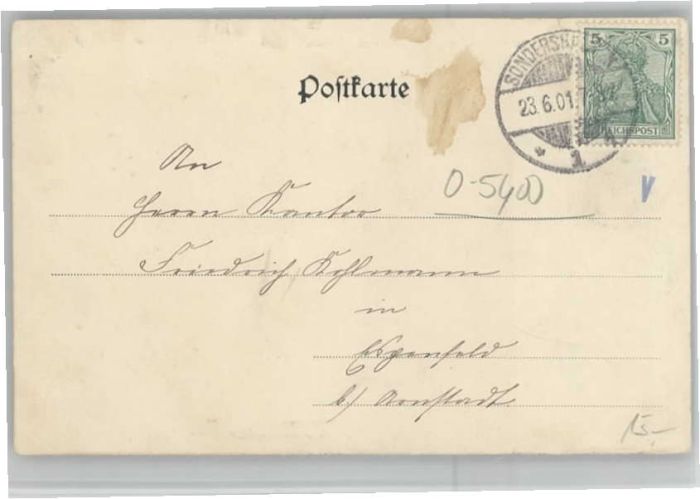 Postkarte
5 5
REICHSPOST
SONDERSHAUSEN
23.6.01.
* 1
An
Herrn Kantor
Friedrich Kohlmann
in
Espenfeld
b/ Arnstadt
O-5400
V
15,-